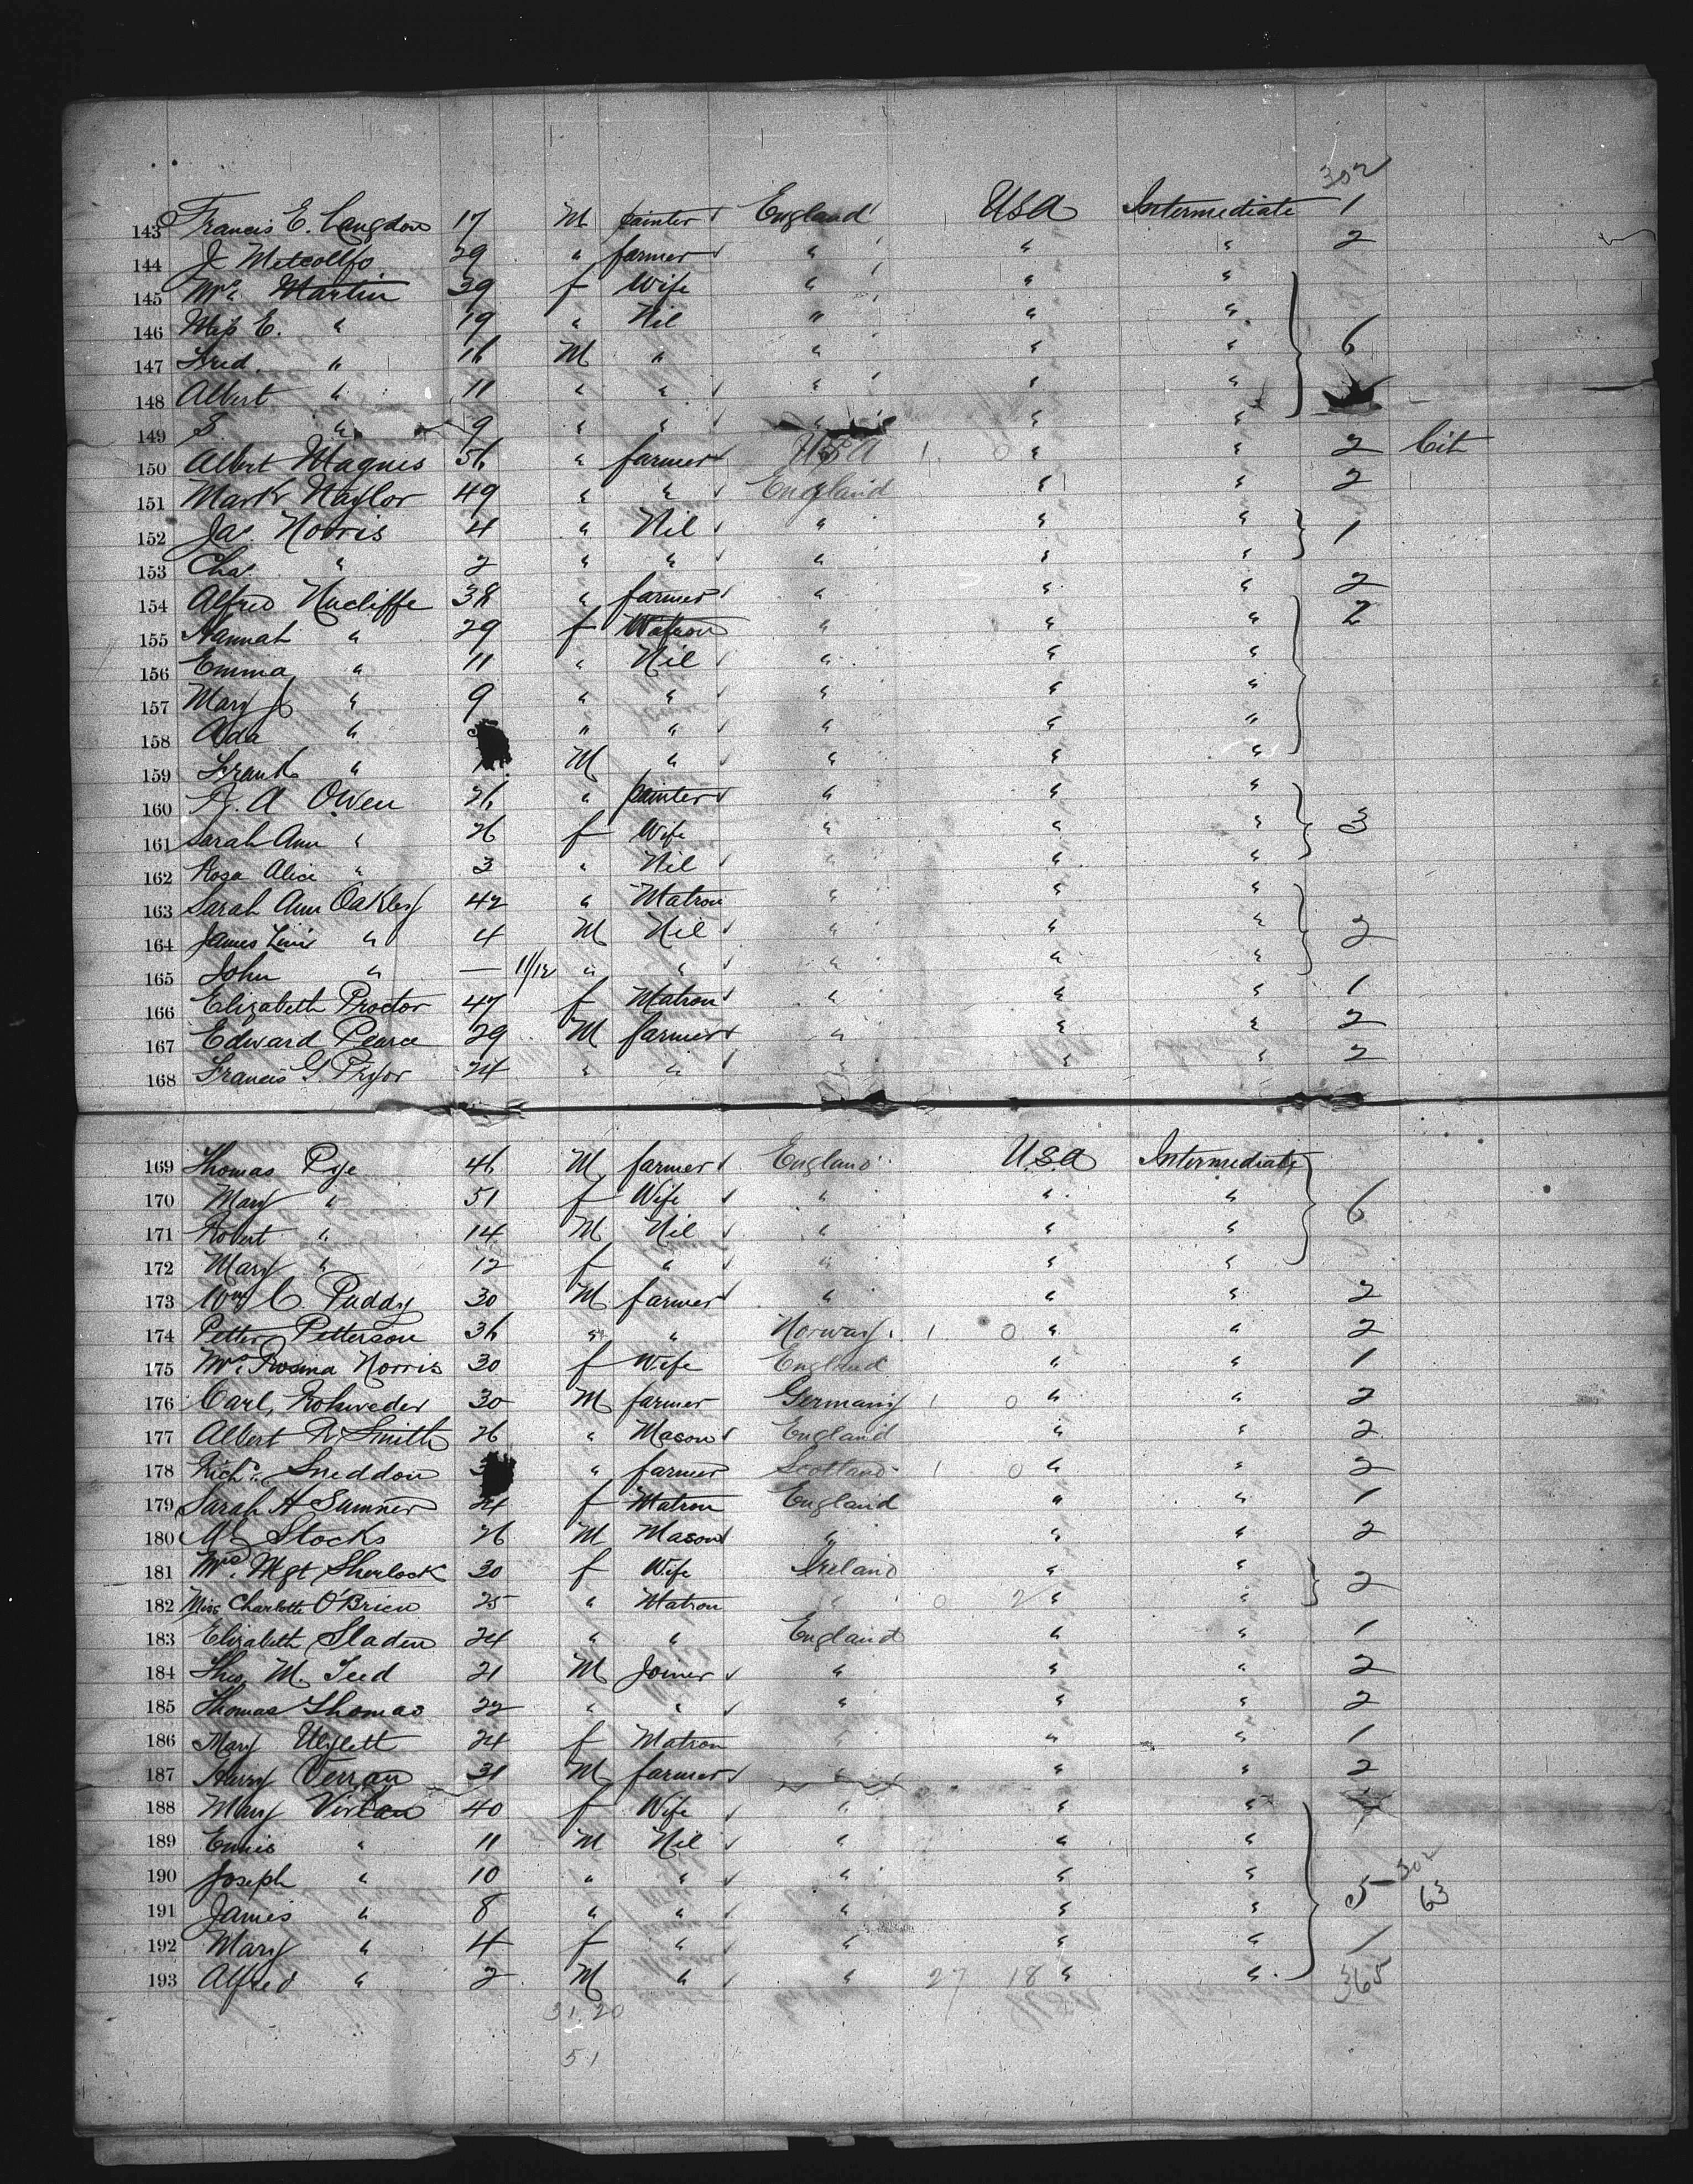 302
143 Francis E. Langdon 17 M painter England USA Intermediate 1
144 J Metcalfe 29 " farmer " " " 2
145 Mrs Martin 39 f Wife " " "
146 Miss E. " 19 " Nil " " "
147 Fred. " 16 M " " " " 6
148 Albert " 11 " " " " "
149 S " 9 " " " " "
150 Albert Magnis 56 " farmer USA 1 0 " " 2 Cit
151 Mark Naylor 49 " " England " " 2
152 Jas. Norris 4 " Nil " " " 1
153 Chas. " 2 " " " " "
154 Alfred Nucliffe 38 " farmer " " " 2
155 Hannah " 29 f Matron " " " 2
156 Emma " 11 " Nil " " "
157 Mary J " 9 " " " " "
158 Ada " " " " " "
159 Frank " M " " " "
160 A. A Owen 26 " painter " " "
161 Sarah Ann " 26 f Wife " " " 3
162 Rosa Alice " 3 " Nil " " "
163 Sarah Ann Oakley 42 " Matron " " "
164 James Lewis " 4 M Nil " " " 2
165 John " — 11/12 " " " " "
166 Elizabeth Proctor 47 f Matron " " " 1
167 Edward Pearce 29 M farmer " " " 2
168 Francis G. Pryor 24 " " " " " 2
169 Thomas Pye 46 M farmer England U.S.A Intermediate
170 Mary " 51 f Wife " " " 6
171 Robert " 14 M Nil " " "
172 Mary " 12 f " " " "
173 Wm C. Puddy 30 M farmer " " " 2
174 Petter Petterson 36 " " Norway 1 0 " " 2
175 Mrs Rosina Norris 30 f Wife England " " 1
176 Carl, Rohweder 30 M farmer Germany 1 0 " " 2
177 Albert R. Smith 26 " Mason England " " 2
178 Richd. Sneddon 3 " farmer Scotland 1 0 " " 2
179 Sarah H Sumner 24 f Matron England " " 1
180 Stocks 26 M Mason " " " 2
181 Mrs. Mgt Sherlock 30 f Wife Ireland " "
182 Miss Charlotte O'Brien 25 " Matron " 0 2 " " 2
183 Elizabeth Sladen 24 " " England " " 1
184 Thos. M. Teed 21 M Joiner " " " 2
185 Thomas Thomas 22 " " " " " 2
186 Mary 24 f Matron " " " 1
187 Harry Verran 31 M farmer " " " 2
188 Mary Vivian 40 f Wife " " "
189 Ennis " 11 M Nil " " "
190 Joseph " 10 " " " " " 302
191 James " 8 " " " " " 5 63
192 Mary " 4 f " " " " 1
193 Alfred " 2 M " " 27 18 " " 365
31. 20
51